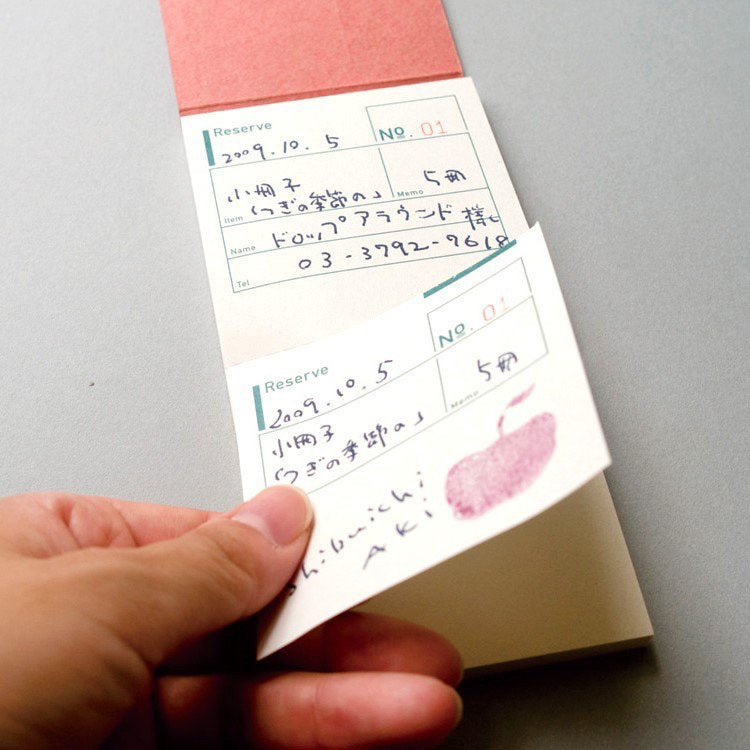 Reserve
No. 01
2009.10.5
小冊子
「つぎの季節の」
5冊
Item
Memo
Name ドロップアラウンド 様
03-3792-7618
Tel
Reserve
No. 01
2009.10.5
小冊子
「つぎの季節の」
5冊
Memo
Shibuichi
Aki